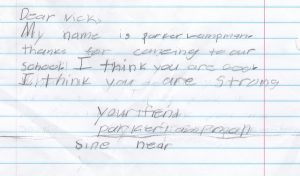 Dear Vick,
My name is parker
thanks for comeing to our
school I think you are cool
I think you are strong
your friend
parker
sine hear